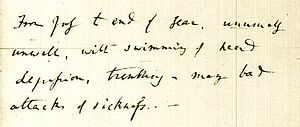 From July to end of year, unusually
unwell, with swimming of head
depression, trembling – many bad
attacks of sickness. –